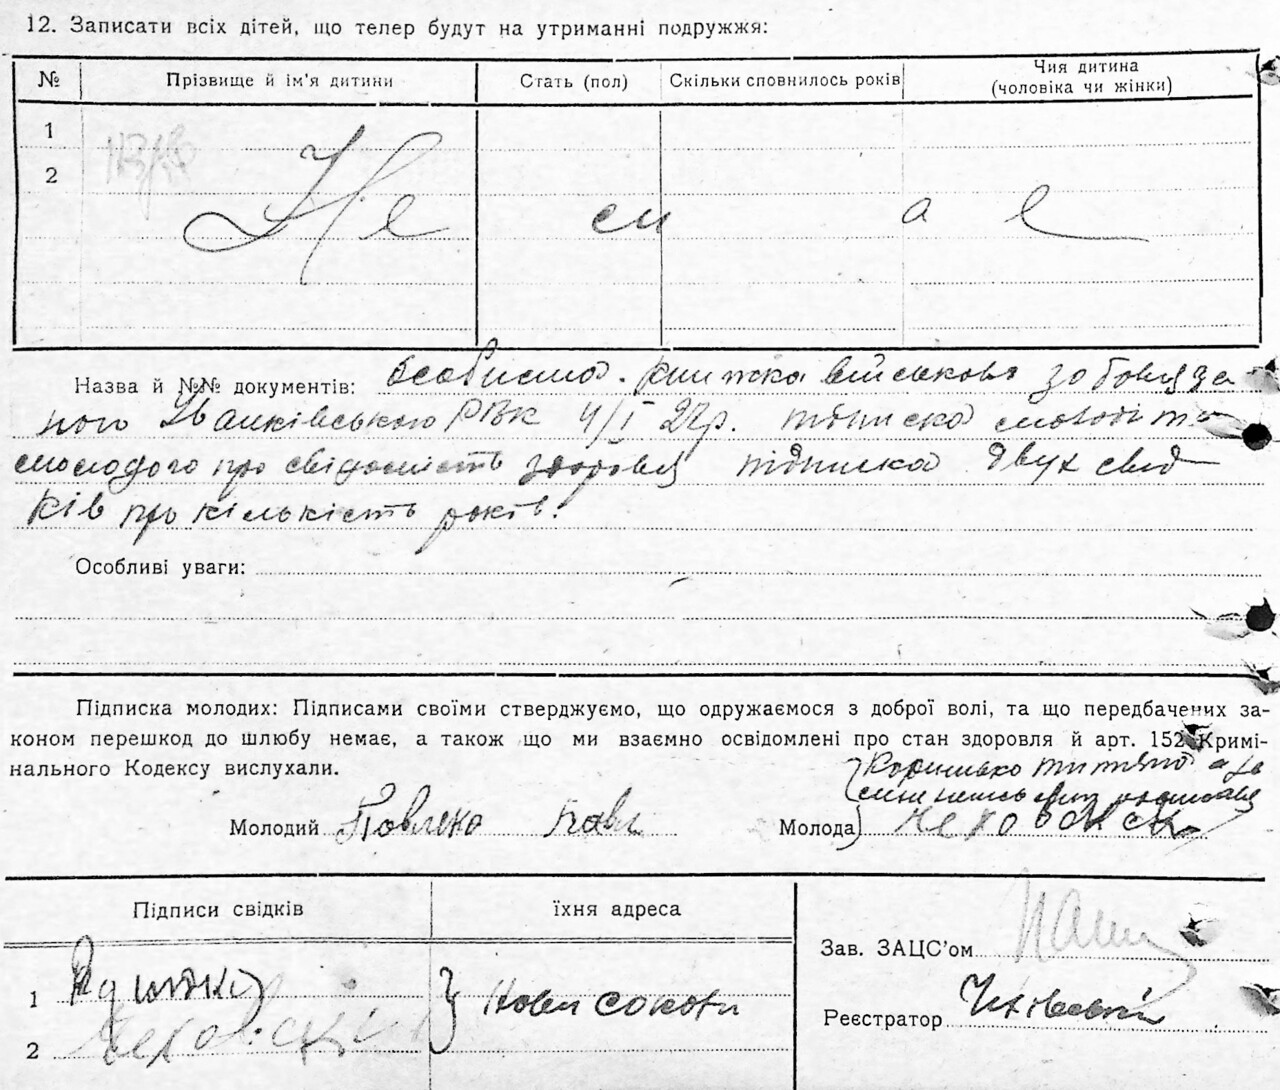 12. Записати всіх дітей, що тепер будут на утриманні подружжя:
№ Прізвище й ім'я дитини Стать (пол) Скільки сповнилось років Чия дитина (чоловіка чи жінки)
1
2
Не має
Назва й №№ документів: книжка військово зобовяза
ного Іванківського РВК 4/I 22р.
молодого про свідомість здоровя підписка двух свид
ків про кількість років.
Особливі уваги:
Підписка молодих: Підписами своїми стверджуємо, що одружаємося з доброї волі, та що передбачених за-
коном перешкод до шлюбу немає, а також що ми взаємно освідомлені про стан здоровя й арт. 152 Кримі-
нального Кодексу вислухали.
Молодий Павленко Павл Молода
Підписи свідків їхня адреса
Зав. ЗАЦС'ом
1
Нови соколи
Реєстратор
2